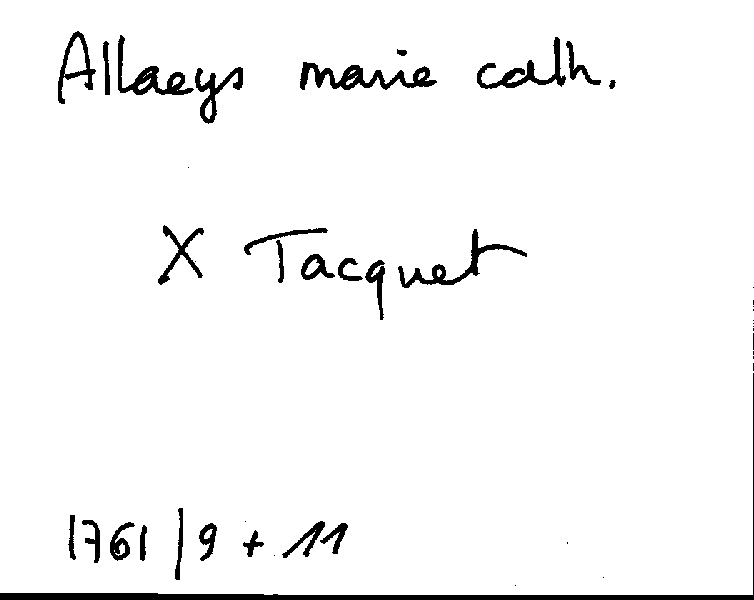 Allaeys marie cath.
X Tacquet
1761 | 9 + 11